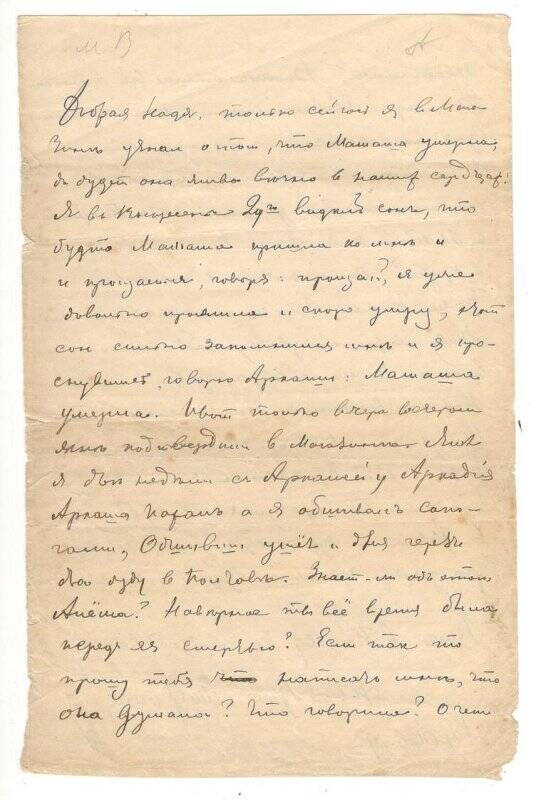 М В
Добрая Надя, только сейчас я в Мага
зинѣ узнал о том, что Мамаша умерла,
да будет она жива вѣчно в наших сердцах!
Я въ Воскресенье 29го видѣл сонъ, что
будто Мамаша пришла ко мнѣ и
и прощается, говоря: прощай, я уже
довольно прожила и скоро умру, этот
сон сильно запомнился мнѣ и я про-
снувшись, говорю Аркаши: Мамаша
умерла. И вот только вчера вечером
мнѣ подтвердили в Магазинах
я двѣ недѣли съ Аркашей у Аркадія
Аркаша а я обшивалъ сапо-
гами, Обшивши ушёл и дня через
два буду в Болховѣ. Знает-ли объ этом
Алёша? Навѣрное ты всё время была
передъ ея смертью? Если так то
прошу тебя написать мнѣ, что
она думала? Что говорила? Очень